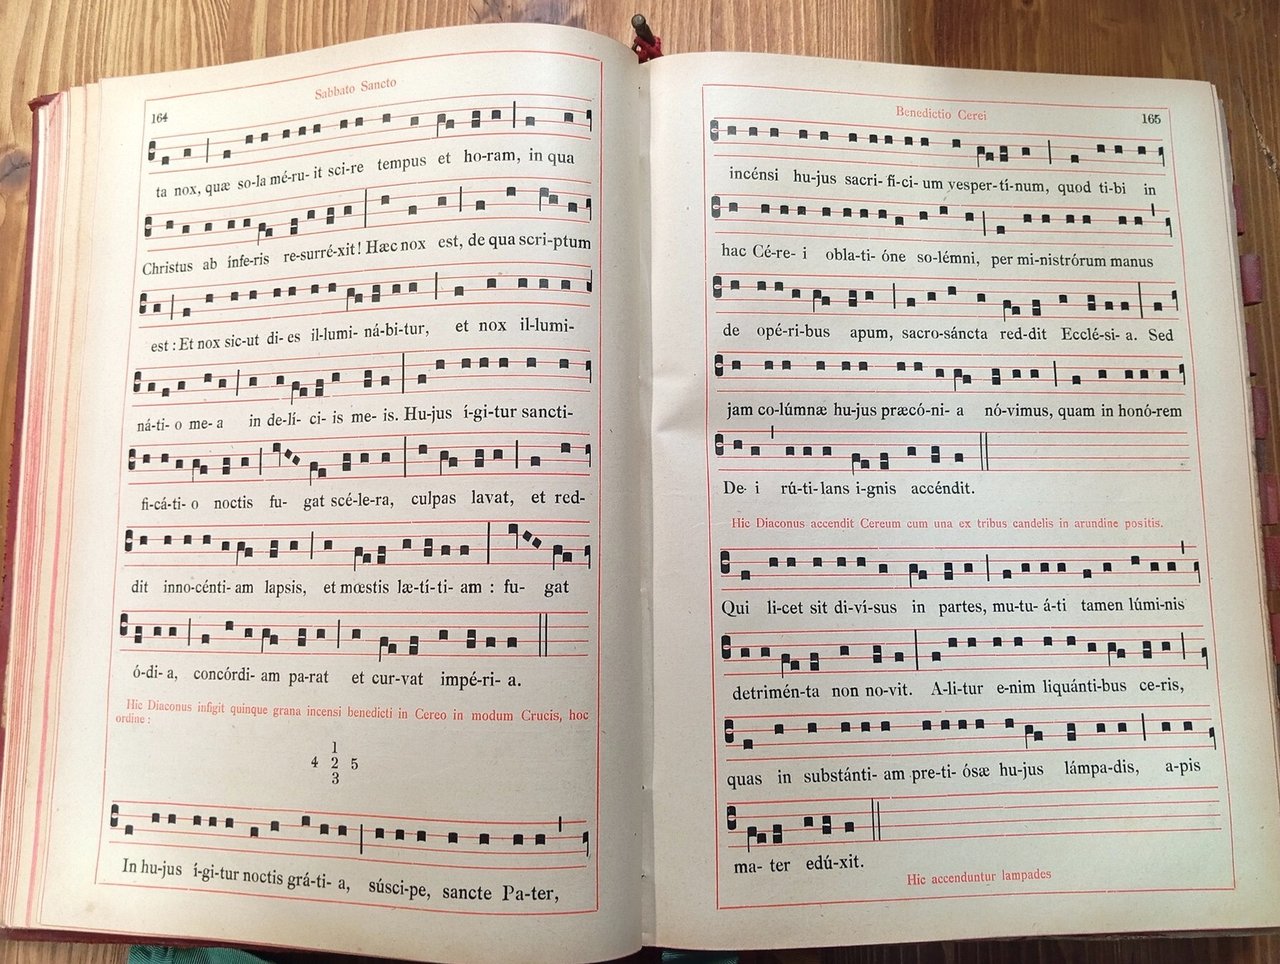 Sabbato Sancto
164
ta nox, quæ so-la mé-ru-it sci-re tempus et ho-ram, in qua
Christus ab ínfe-ris re-surré-xit! Hæc nox est, de qua scri-ptum
est : Et nox sic-ut di-es il-lumi- ná-bi-tur, et nox il-lumi-
ná-ti-o me-a in de-lí- ci-is me-is. Hu-jus í-gi-tur sancti-
fi-cá-ti-o noctis fu- gat scé-le-ra, culpas lavat, et red-
dit inno-cénti-am lapsis, et mœstis læ-tí-ti-am : fu- gat
ó-di-a, concórdi-am pa-rat et cur-vat impé-ri-a.
Hic Diaconus infigit quinque grana incensi benedicti in Cereo in modum Crucis, hoc
ordine :
1
4 2 5
3
In hu-jus í-gi-tur noctis grá-ti-a, súsci-pe, sancte Pa-ter,
Benedictio Cerei
165
incénsi hu-jus sacri-fi-ci-um vesper-tí-num, quod ti-bi in
hac Cé-re-i obla-ti-óne so-lémni, per mi-nistrórum manus
de opé-ri-bus apum, sacro-sáncta red-dit Ecclé-si-a. Sed
jam co-lúmnæ hu-jus præcó-ni-a nó-vimus, quam in honó-rem
De-i rú-ti-lans i-gnis accéndit.
Hic Diaconus accendit Cereum cum una ex tribus candelis in arundine positis.
Qui li-cet sit di-ví-sus in partes, mu-tu-á-ti tamen lúmi-nis
detrimén-ta non no-vit. A-li-tur e-nim liquánti-bus ce-ris,
quas in substánti-am pre-ti-ósæ hu-jus lámpa-dis, a-pis
ma-ter edú-xit.
Hic accenduntur lampades